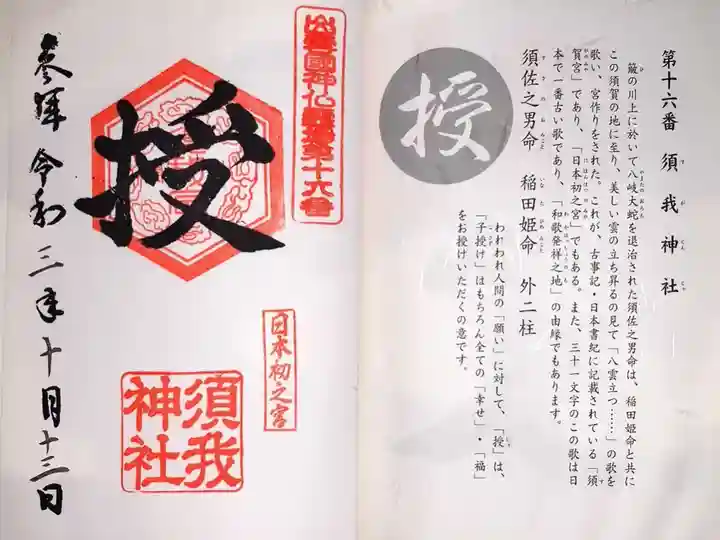 第十六番 須我神社
簸の川上に於いて八岐大蛇を退治された須佐之男命は、稲田姫命と共に
この須賀の地に至り、美しい雲の立ち昇るの見て「八雲立つ……」の歌を
歌い、宮作りをされた。これが、古事記・日本書紀に記載されている「須
賀宮」であり、「日本初之宮」でもある。また、三十一文字のこの歌は日
本で一番古い歌であり、「和歌発祥之地」の由縁でもあります。
須佐之男命 稲田姫命 外二柱
われわれ人間の「願い」に対して、「授」は、
「子授け」はもちろん全ての「幸せ」・「福」
をお授けいただくの意です。
授
出雲國神仏霊場第十六番
日本初之宮
授
須我
神社
参拝 令和三年十月十三日